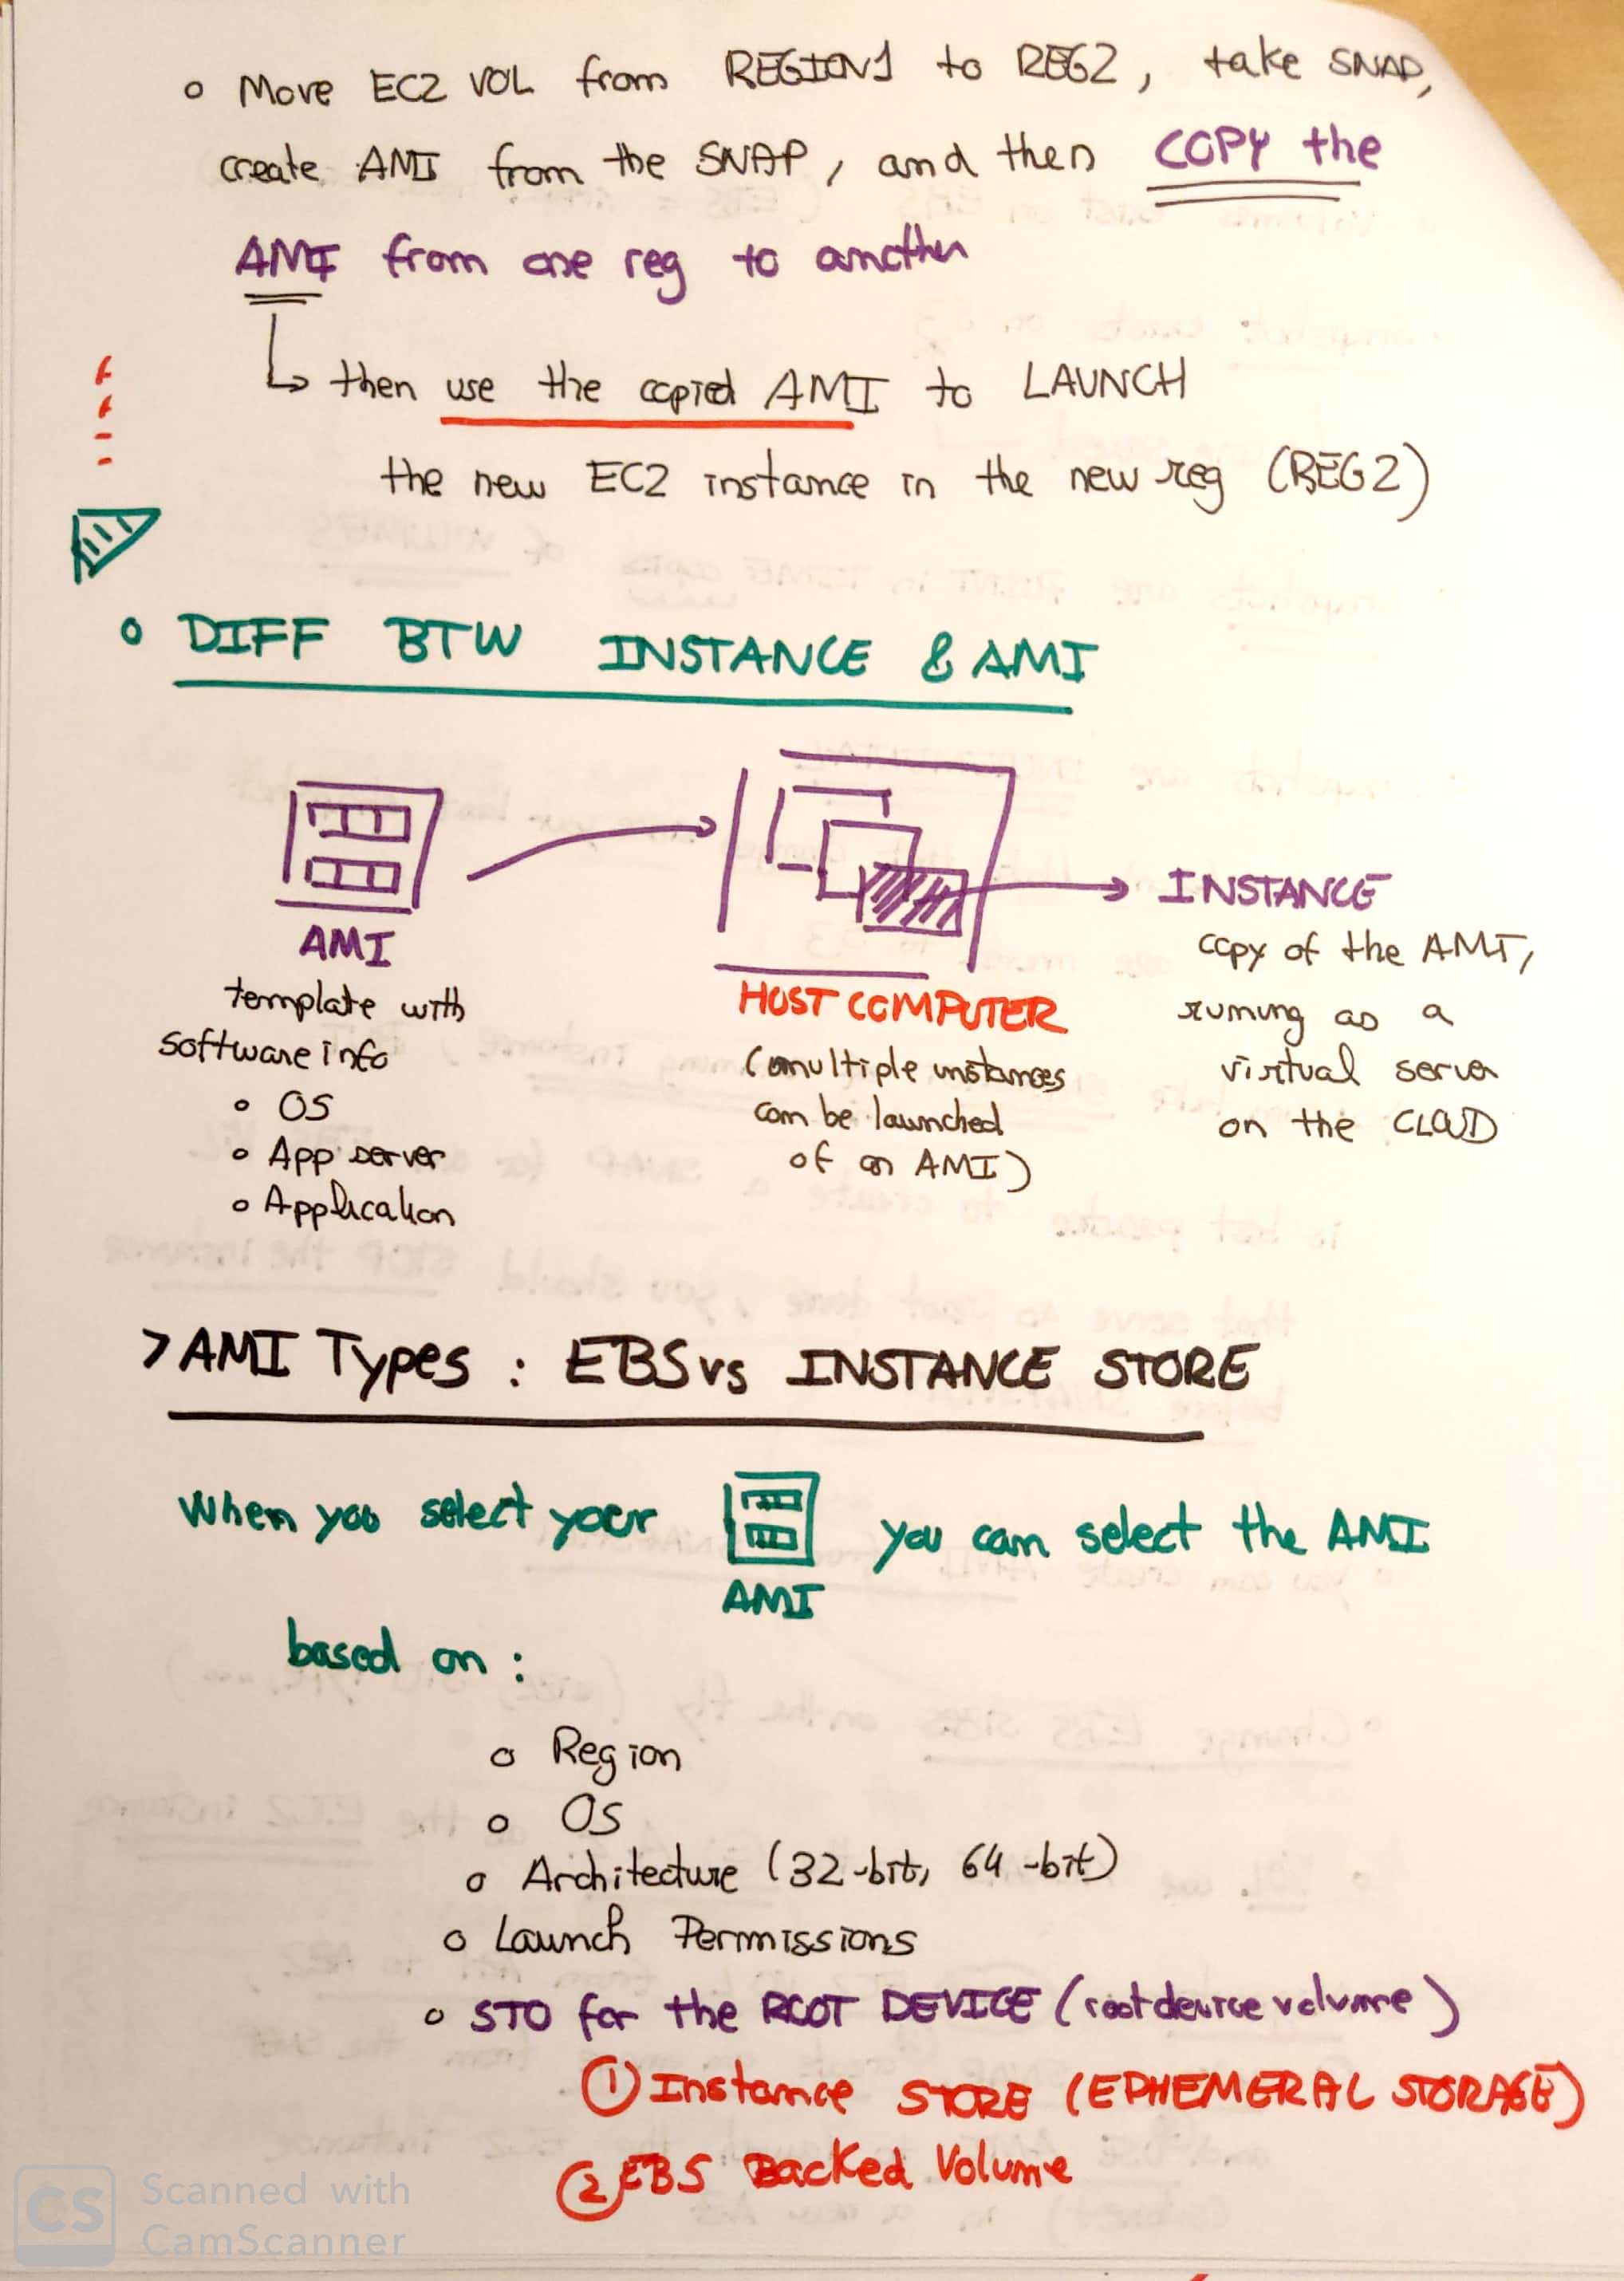 o Move EC2 VOL from REGION1 to REG2, take SNAP,
create AMI from the SNAP, and then COPY the
AMI from one reg to another
↳ then use the copied AMI to LAUNCH
the new EC2 instance in the new reg (REG2)
o DIFF BTW INSTANCE & AMI
AMI
template with
software info
o OS
o App server
o Application
HOST COMPUTER
(multiple instances
can be launched
of an AMI)
INSTANCE
copy of the AMI,
runing as a
virtual server
on the CLOUD
> AMI Types : EBS vs INSTANCE STORE
When you select your AMI you can select the AMI
based on :
o Region
o OS
o Architecture (32-bit, 64-bit)
o Launch Permissions
o STO for the ROOT DEVICE (root device volume)
① Instance STORE (EPHEMERAL STORAGE)
② EBS Backed Volume
CS Scanned with
CamScanner